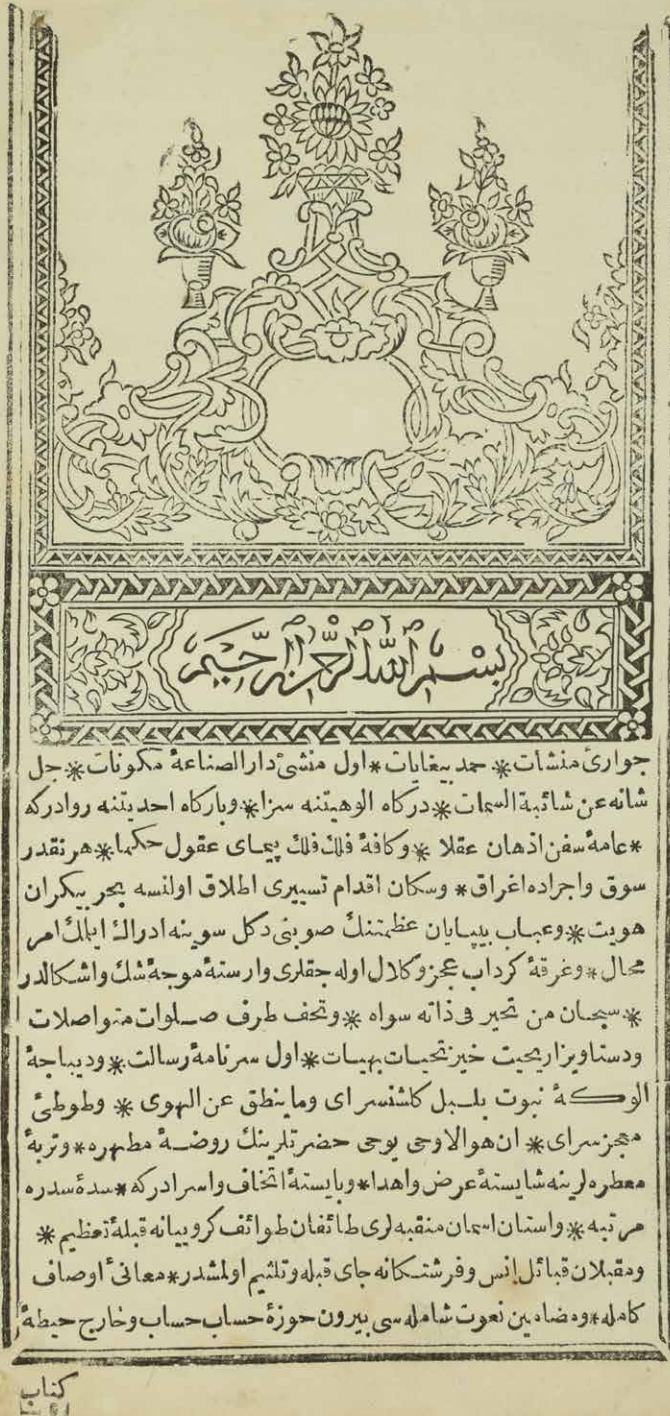 بسم الله الرحمن الرحيم
جوارئ منشات * حمد بيغايات * اول منشئ دار الصناعهٔ مكونات * جل
شانه عن شائبة السمات * دركاه الوهيتنه سزا * وباركاه احديتنه روادركه
* عامهٔ سفن اذهان عقلا * وكافهٔ فلك فلك پيماى عقول حكما * هر نقدر
سوق واجراده اغراق * وسكان اقدام تسييرى اطلاق اولنسه بحر بيكران
هويت * وعباب بيپايان عظمتنك صوينى دكل سوينه ادراك ايلمك امر
محال * وغرقهٔ كرداب عجز وكلال اوله جقلرى وارستهٔ موجهٔ شك واشكالدر
* سبحان من تحير فى ذاته سواه * وتحف طرف صلوات متواصلات
ودستاويز اريحيت خيز تحيات بهيات * اول سرنامهٔ رسالت * وديباجهٔ
الوكهٔ نبوت بلبل كلشنسراى وما ينطق عن الهوى * وطوطئ
معجز سراى * ان هو الا وحى يوحى حضرتلرينك روضهٔ مطهره * وتربهٔ
معطره لرينه شايستهٔ عرض واهدا * وبايستهٔ اتحاف واسرادركه * سدهٔ سدره
مرتبه * واستان اسمان منقبه لرى طائفان طوائف كروبيانه قبلهٔ تعظيم *
ومقبلان قبائل انس وفرشتكانه جاى قبله وتلثيم اولمشدر * معانئ اوصاف
كامله * ومضامين نعوت شامله سى بيرون حوزهٔ حساب حساب وخارج حيطهٔ
كتاب